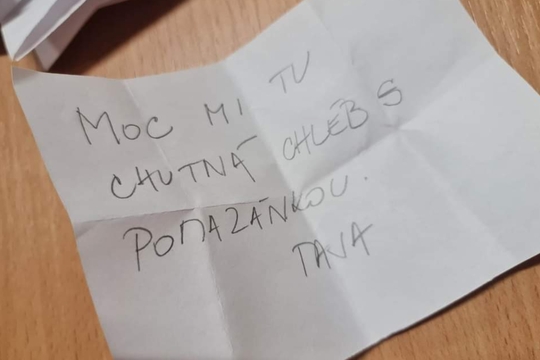 MOC MI TU
CHUTNÁ CHLÉB S
POMAZÁNKOU.
TAVA